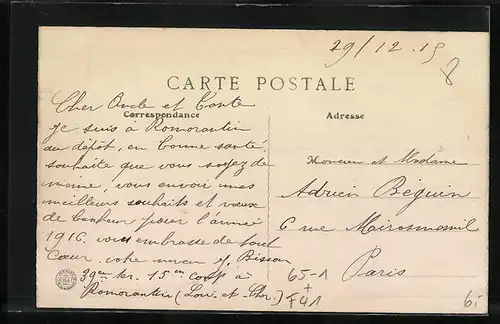 29/12.15
8
CARTE POSTALE
Correspondance
Adresse
Cher Oncle et Tante
Je suis à Romorantin
au dépôt, en bonne santé
souhaite que vous soyez de
meme, vous envoi mes
meilleurs souhaits et vœux
de bonheur pour l'année
1916. vous embrasse de tout
Cœur. votre neveu Bisson
39em 15em à
Romorantin (Loir et Cher.)
Monsieur et Madame
Adrien Béguin
6 rue Mirosmenil
Paris
65-1
+
F41